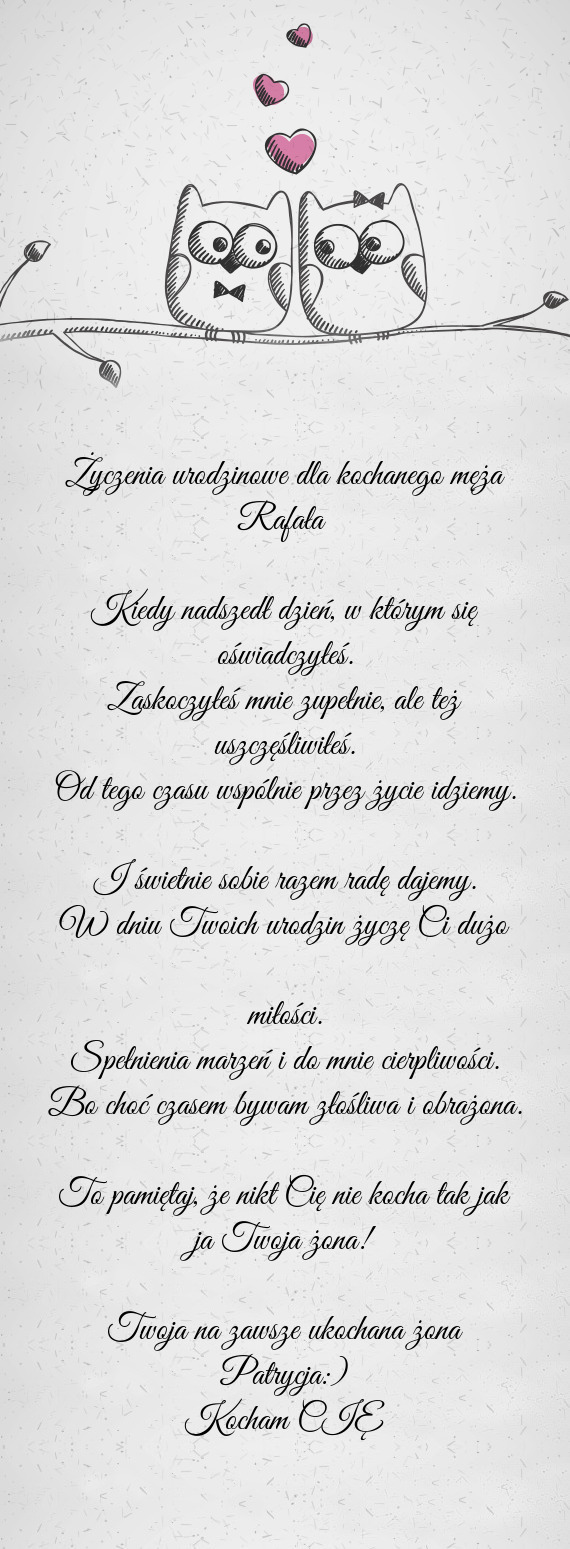 Życzenia urodzinowe dla kochanego męża
Rafała
Kiedy nadszedł dzień, w którym się
oświadczyłeś.
Zaskoczyłeś mnie zupełnie, ale też
uszczęśliwiłeś.
Od tego czasu wspólnie przez życie idziemy.
I świetnie sobie razem radę dajemy.
W dniu Twoich urodzin życzę Ci dużo
miłości.
Spełnienia marzeń i do mnie cierpliwości.
Bo choć czasem bywam złośliwa i obrażona.
To pamiętaj, że nikt Cię nie kocha tak jak
ja Twoja żona!
Twoja na zawsze ukochana żona
Patrycja:)
Kocham CIĘ